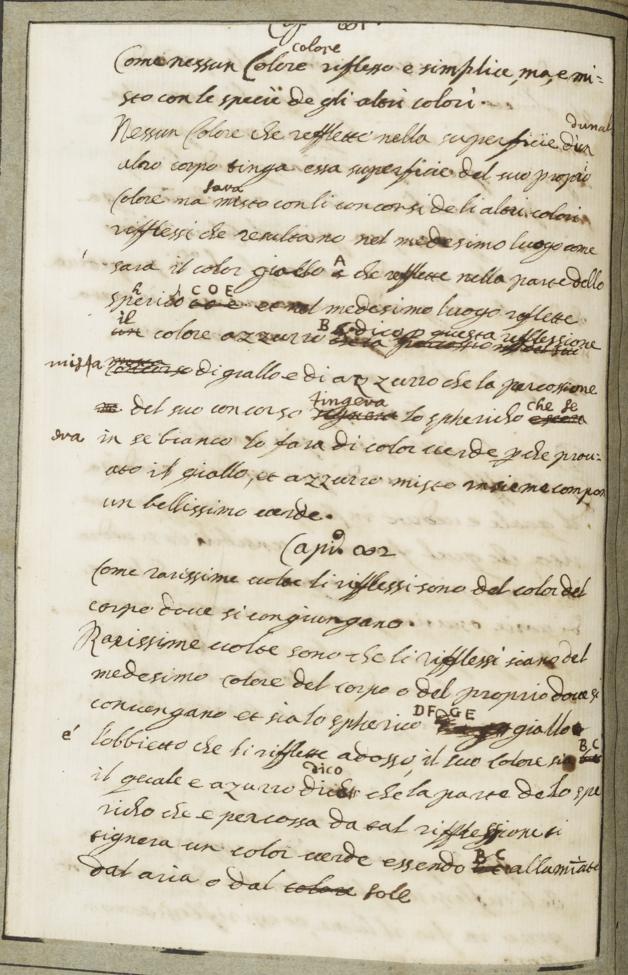 colore
Come nessun Colore riflesso e simplice, ma, e mi=
sto con le specië de gli altri colori.
dunal
Nessun Colore che reffletté nella superficïe d'un
altro corpo tinga essa superficie del suo proprio
sara
Colore ma misto con li concorsi de li altri colori
rifflessi che resultano nel medesimo luogo come
A
sara il color giallo che refflette nella parte dello
h C O E
sperico et nel medesimo luogo reflette
il B dico p questa reflessione
un colore azzurro
mista di giallo e di azzurro che la percossione
tingeva che se
del suo concorso lo sphericho
eva in se bianco lo fara di color verde p che prou=
ato il giallo, et azzurro misto insieme compon
un bellissimo verde.
Capi.º
Come rarissime volte li riflessi sono del color del
corpo doue si congiungano.
Rarissime volte sono che li rifflessi siano del
medesimo colore del corpo o del proprio doue si
DF GE
conuengano et sia lo spherico giallo
é l'obbietto che li rifflette adosso, il suo colore sia B C
dico
il quale e azurro che la parte delo spe
richo che e percossa da tal rifflessione si
B C
tignera un color verde essendo alluminato
dal aria o dal colore sole